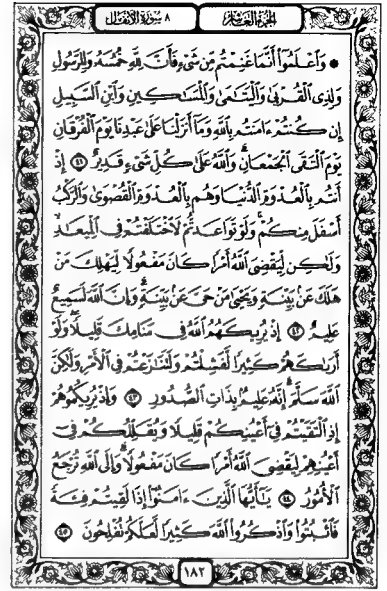 الجزء العاشر
٨ سورة الأنفال
۞ وَٱعْلَمُوٓا۟ أَنَّمَا غَنِمْتُم مِّن شَىْءٍ فَأَنَّ لِلَّهِ خُمُسَهُۥ وَلِلرَّسُولِ
وَلِذِى ٱلْقُرْبَىٰ وَٱلْيَتَٰمَىٰ وَٱلْمَسَٰكِينِ وَٱبْنِ ٱلسَّبِيلِ
إِن كُنتُمْ ءَامَنتُم بِٱللَّهِ وَمَآ أَنزَلْنَا عَلَىٰ عَبْدِنَا يَوْمَ ٱلْفُرْقَانِ
يَوْمَ ٱلْتَقَى ٱلْجَمْعَانِ ۗ وَٱللَّهُ عَلَىٰ كُلِّ شَىْءٍ قَدِيرٌ ٤١ إِذْ
أَنتُم بِٱلْعُدْوَةِ ٱلدُّنْيَا وَهُم بِٱلْعُدْوَةِ ٱلْقُصْوَىٰ وَٱلرَّكْبُ
أَسْفَلَ مِنكُمْ ۚ وَلَوْ تَوَاعَدتُّمْ لَٱخْتَلَفْتُمْ فِى ٱلْمِيعَٰدِ ۙ
وَلَٰكِن لِّيَقْضِىَ ٱللَّهُ أَمْرًا كَانَ مَفْعُولًا لِّيَهْلِكَ مَنْ
هَلَكَ عَنۢ بَيِّنَةٍ وَيَحْيَىٰ مَنْ حَىَّ عَنۢ بَيِّنَةٍ ۗ وَإِنَّ ٱللَّهَ لَسَمِيعٌ
عَلِيمٌ ٤٢ إِذْ يُرِيكَهُمُ ٱللَّهُ فِى مَنَامِكَ قَلِيلًا ۖ وَلَوْ
أَرَىٰكَهُمْ كَثِيرًا لَّفَشِلْتُمْ وَلَتَنَٰزَعْتُمْ فِى ٱلْأَمْرِ وَلَٰكِنَّ
ٱللَّهَ سَلَّمَ ۗ إِنَّهُۥ عَلِيمٌۢ بِذَاتِ ٱلصُّدُورِ ٤٣ وَإِذْ يُرِيكُمُوهُمْ
إِذِ ٱلْتَقَيْتُمْ فِىٓ أَعْيُنِكُمْ قَلِيلًا وَيُقَلِّلُكُمْ فِىٓ
أَعْيُنِهِمْ لِيَقْضِىَ ٱللَّهُ أَمْرًا كَانَ مَفْعُولًا ۗ وَإِلَى ٱللَّهِ تُرْجَعُ
ٱلْأُمُورُ ٤٤ يَٰٓأَيُّهَا ٱلَّذِينَ ءَامَنُوٓا۟ إِذَا لَقِيتُمْ فِئَةً
فَٱثْبُتُوا۟ وَٱذْكُرُوا۟ ٱللَّهَ كَثِيرًا لَّعَلَّكُمْ تُفْلِحُونَ ٤٥
١٨٢